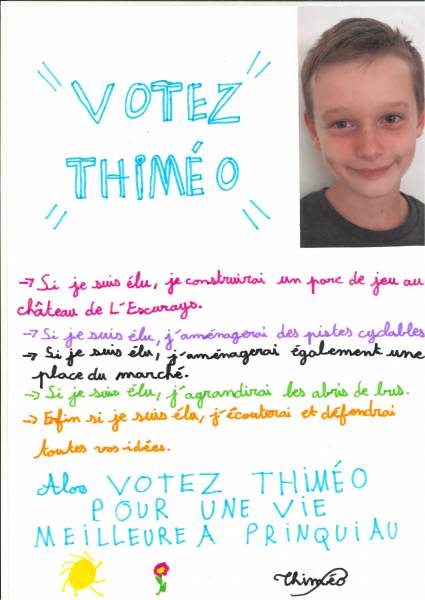 VOTEZ
THIMÉO
→ Si je suis élu, je construirai un parc de jeu au
château de L'Escurays.
→ Si je suis élu, j'aménagerai des pistes cyclables
→ Si je suis élu, j'aménagerai également une
place du marché.
→ Si je suis élu, j'agrandirai les abris de bus.
→ Enfin si je suis élu, j'écouterai et défendrai
toutes vos idées.
Alos VOTEZ THIMÉO
POUR UNE VIE
MEILLEURE A PRINQUIAU
Thiméo